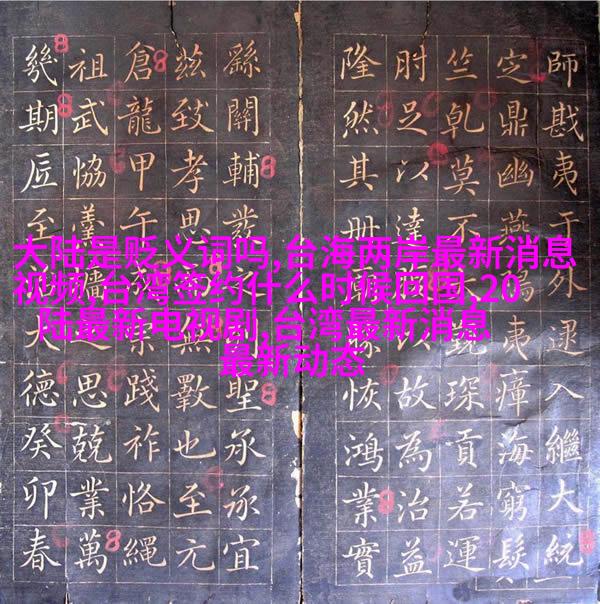 大陆是贬义词吗,台海两岸最新消息
视频 台湾签约什么时候回国,20
陆最新电视剧,台湾最新消息
最新动态
師戡夷于外逮入繼大統
定鼎幽燕夷瘴海窮髮
竺乹莫不琛貢若運
肘足以達以故為治益
隆然其冊恢鴻業實
繇關輔發聖承承宜
茲致孝思斁也至元
倉龍甲午踐祚恪繩
祖武恊牆思兢業萬
幾期匠至大德癸卯春